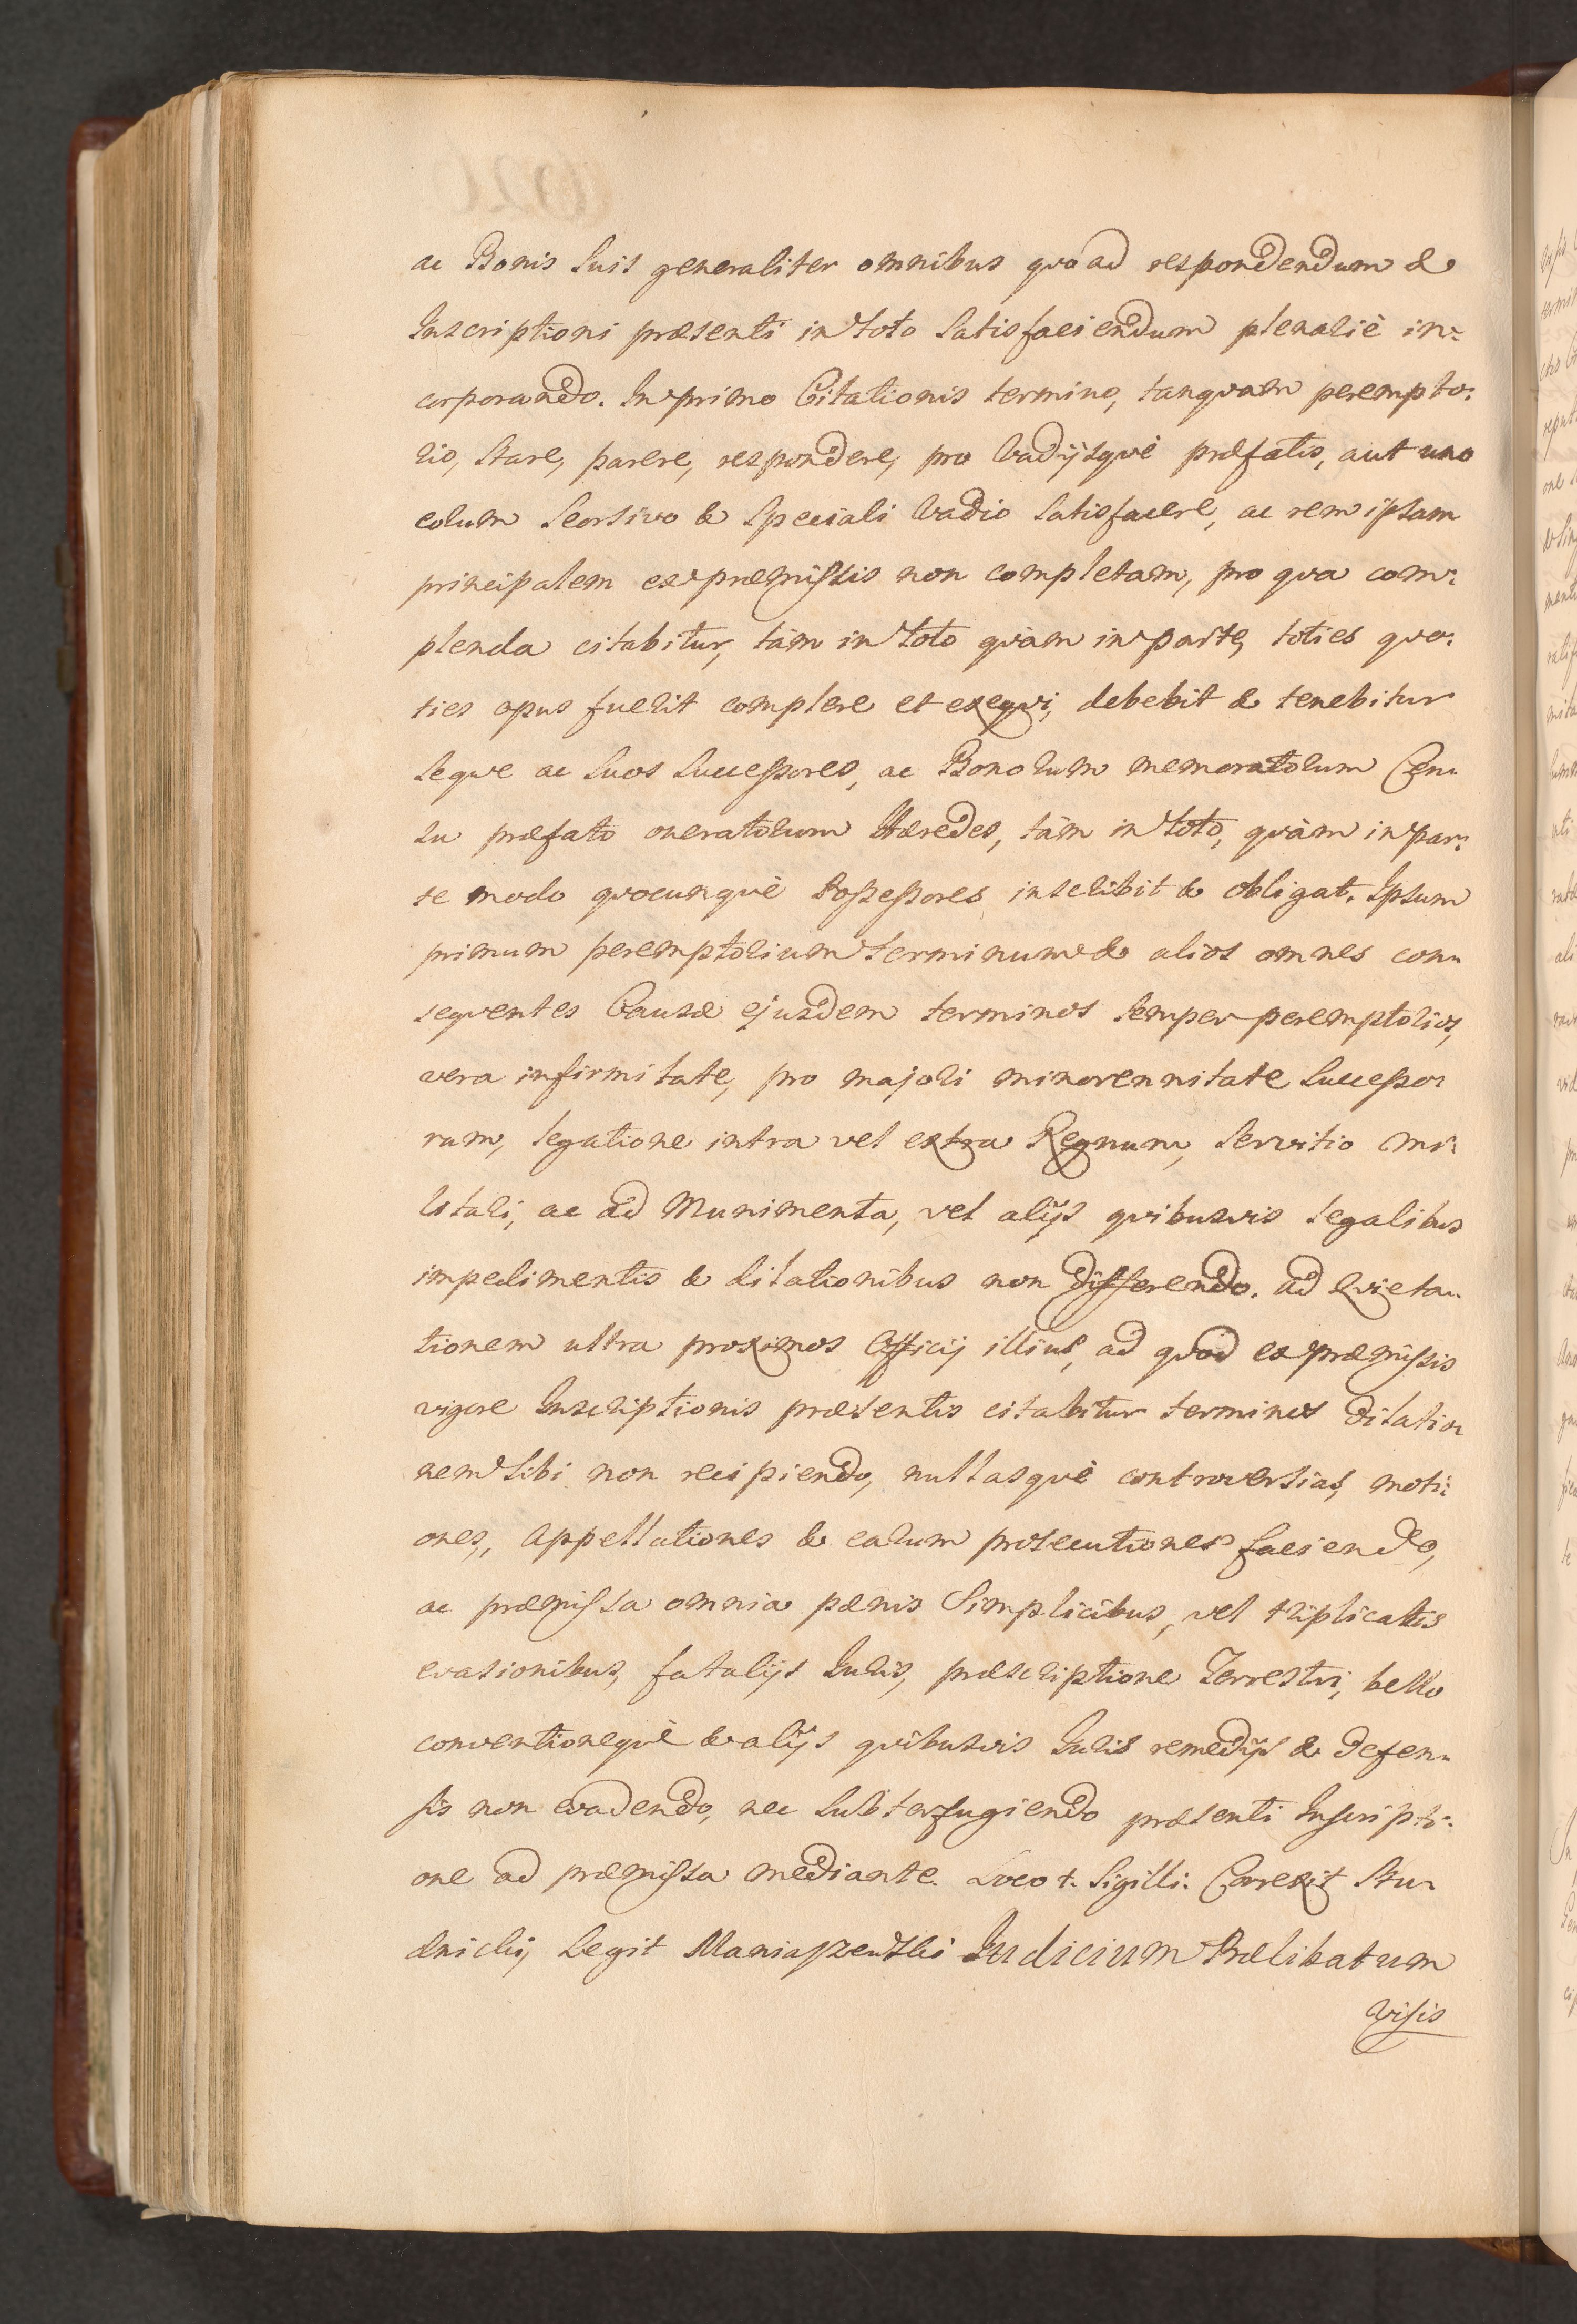 ac Bonis suis generaliter omnibus quo ad respondendum &
Inscriptioni præsenti in toto satisfaciendum plenariè in:
corporando. In primo Citationis termino, tanquam perempto:
rio, stare, parere, respondere, pro vadijsquè præfatis, aut uno
eorum seorsivo & speciali vadio satisfacere, ac rem ipsam
principalem ex præmissis non completam, pro qua com:
plenda citabitur, tàm in toto quàm in parte, toties quo:
ties opus fuerit complere et exequi, debebit & tenebitur
seque ac suos successores, ac Bonorum memoratorum Cen:
su præfato oneratorum Hæredes, tàm in toto, quàm in par:
te modo quocunquè Possessores inscribit & obligat. Ipsum
primum peremptorium terminum & alios omnes con:
sequentes Causæ ejusdem terminos semper peremptorios,
vera infirmitate, pro majori minorennitate successo:
rum, legatione intra vel extra Regnum, servitio mi:
litari, ac ad Munimenta, vel alijs quibusvis legalibus
impedimentis & dilationibus non differendo. ad Quieta:
tionem ultra proximos Officij illius, ad quod ex præmissis
vigore Inscriptionis præsentis citabitur terminos dilatio:
nem sibi non recipiendo, nullasquè controversias, moti:
ones, appellationes & earum prosecutiones faciendo,
ac præmissa omnia pænis simplicibus, vel triplicatis
evasionibus, fatalijs Iuris, præscriptione Terrestri, bello
conventionequè & alijs quibusvis Iuris remedijs & defen:
sis non evadendo, nec subterfugiendo præsenti Inscripti:
one ad præmissa mediante. Loco +. Sigilli. Correxit Stu:
dnicki, Legit Judicium Prælibatum
Visis